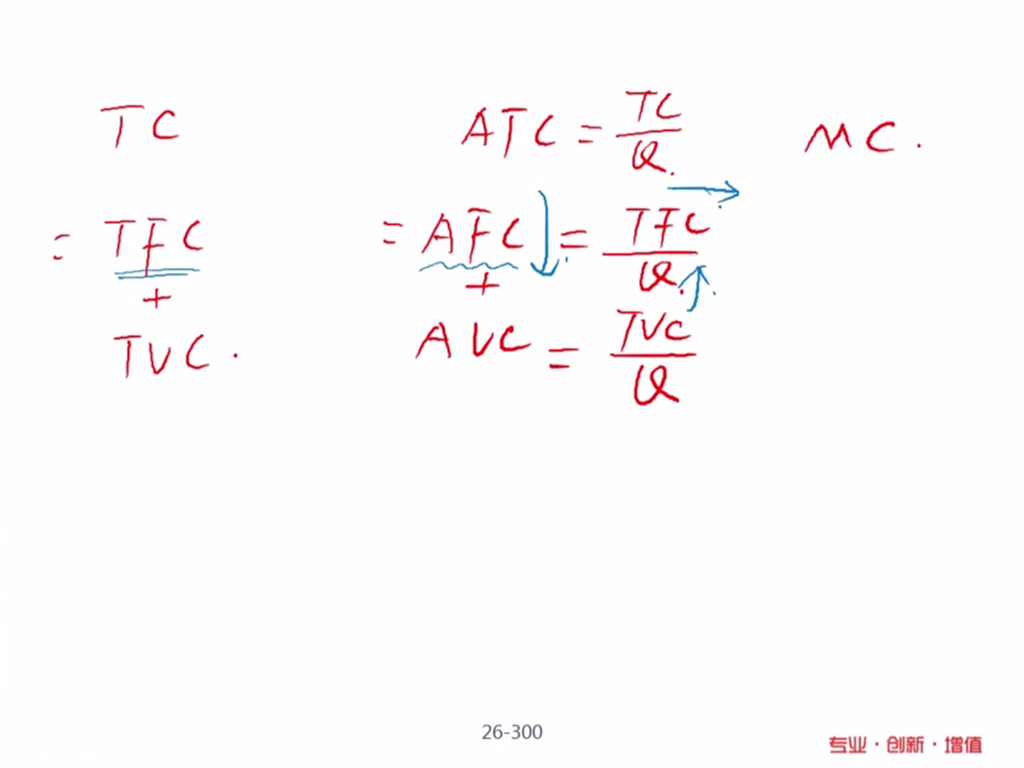 TC ATC = TC/Q. MC.
= TFC = AFC = TFC/Q.
+ +
TVC. AVC = TVC/Q
26-300
专业·创新·增值